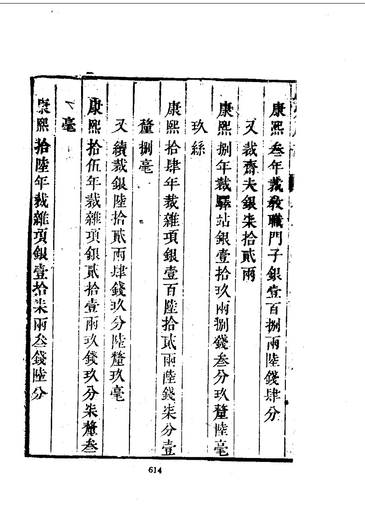 康熙叁年裁教職門子銀壹百捌兩陸錢肆分
又裁齋夫銀柒拾貳兩
康熙捌年裁驛站銀壹拾玖兩捌錢叁分玖釐陸毫
玖絲
康熙拾肆年裁雜項銀壹百陸拾貳兩陸錢柒分壹
釐捌毫
又續裁銀陸拾貳兩肆錢玖分陸釐玖毫
康熙拾伍年裁雜項銀貳拾壹兩玖錢玖分柒釐叁
毫
康熙拾陸年裁雜項銀壹拾柒兩叁錢陸分
614